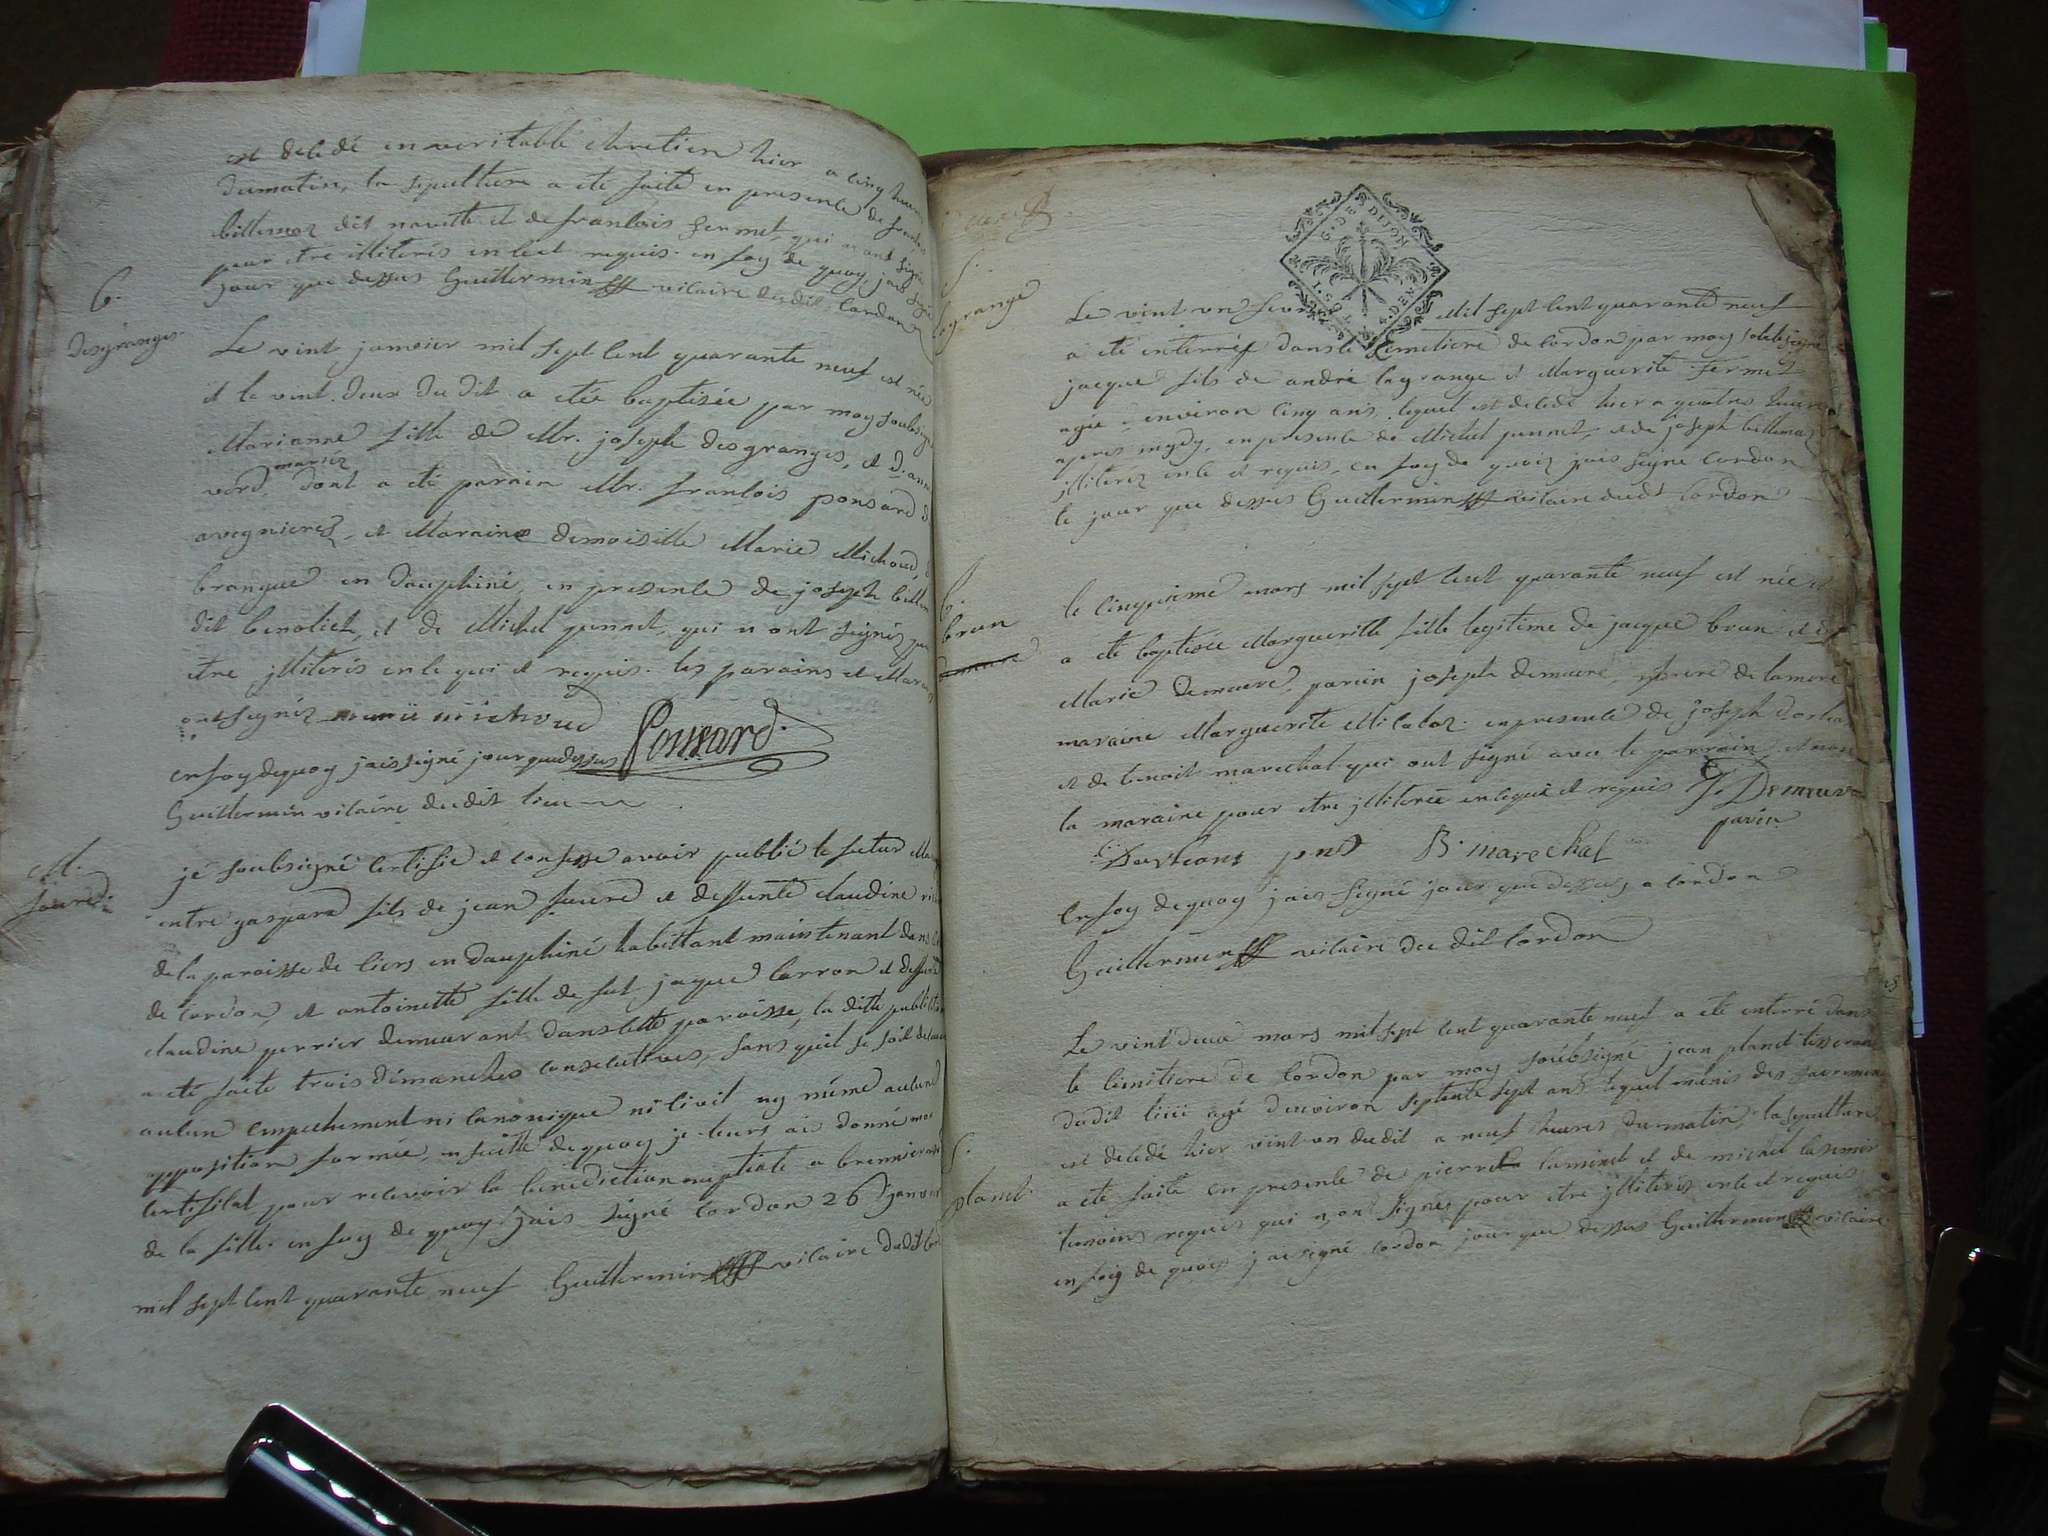 est decedé en veritable chretien hier a cinq heures
du matin, la sepulture a ete faite en presence de
billemaz dit navette et de francois fermet, qui n ont signé
pour etre illiterés en ce et requis. en foy de quoy j'ais signé
jour que dessus Guillermin vicaire dudit Cordon
B.
Desgranges
Le vint janvier mil sept cent quarante neuf est née
et le vint deux du dit a eté baptisée par moy soubsigné
Marianne fille de Mr. joseph desgranges, et d. anne
mariéz
dont a eté parain Mr. francois ponsard
avegnieres, et Maraine demoiselle Marie Michoud,
brangue en dauphiné, en presence de joseph
dit benoliet, et de Michel punnet, qui n ont signéz pour
etre jlliterés en ce qui et requis. les parains et Maraine
ont signéz marie michoud Ponsard
en foy de quoy j'ais signé jour que dessus
Guillermin vicaire du dit lieu
M.
favre
je soubsigné certifie et confesse avoir publié le futur
entre gaspard fils de jean favre et deffunte claudine
de la paroisse de ciers en dauphiné habittant maintenant dans
de Cordon, et antoinette fille de fut jaque carron et deffunte
claudine perrier demeurant dans cette paroisse, la ditte
a eté faite trois dimanches consecutives, sans qu'il se soit
aucun empechement ni canonique ni civil ny même aucune
opposition formée, en suitte de quoy je leurs ai donné mon
certificat pour recevoir la benediction nuptiale a
de la fille. en foy de quoy j'ais signé Cordon 26 janvier
mil sept cent quarante neuf Guillermin vicaire dudit
G. DE DIJON
S.
lagrange
Le vint un fevrier Mil sept cent quarante neuf
a eté enterré dans le Cemetiere de Cordon par moy soubsigné
jacque fils de andré lagrange et Marguerite fermet
agé environ cinq ans, lequel est decedé hier a quatres heures
apres mydy, en presence de Michel punnet, et de joseph billemaz
jlliterez en ce et requis, en foy de quoiy j'ais signé Cordon
le jour que dessus Guillermin vicaire dudt Cordon
b.
brun
le cinquieme mars mil sept cent quarante neuf est née et
a eté baptisée Marguerille fille legitime de jacque brun et de
Marie demeure, parain joseph demeure, frere de la mere
maraine Marguerite Micaloz. en presence de joseph
et de benoit marechal qui ont signé avec le parrain et non
la maraine pour etre jlliterée en ce qui et requis J. Demeure
parin
B. marechal
En foy de quoy j'ais signé jour que dessus a Cordon
Guillermin vicaire du dit Cordon
S.
planet.
Le vint deux mars mil sept cent quarante neuf a eté enterré dans
le Cimitiere de Cordon par moy soubsigné jean planet tisserand
dudit lieu agé d'environ septente sept ans lequel munis des sacremens
est decedé hier vint un dudit a neuf heures du matin, la sepulture
a eté faite en presence de pierre caminet et de michel
temoins requis qui n ont signés pour etre jlliterés en ce et requis
en foiy de quois j'ai signé Cordon jour que dessus Guillermin vicaire